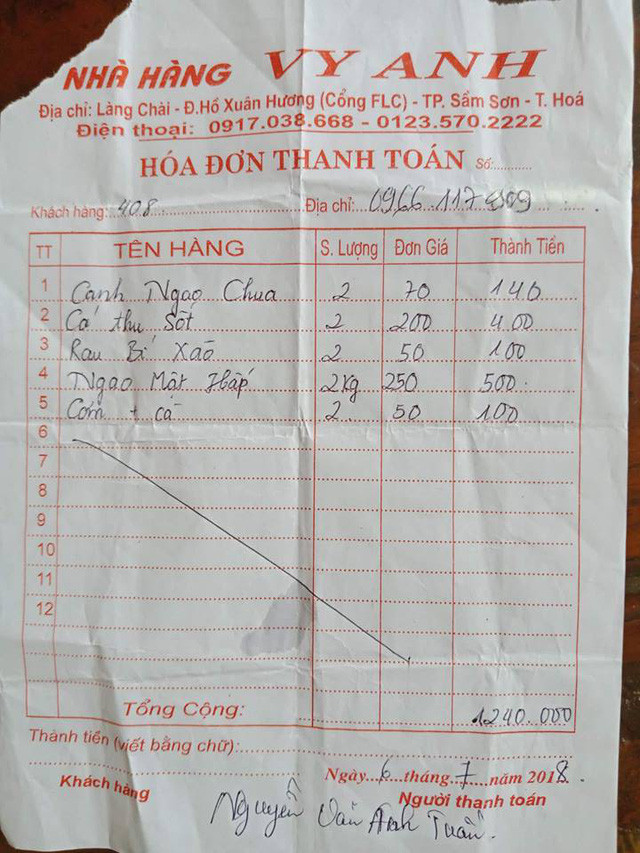 NHÀ HÀNG VY ANH
Địa chỉ: Làng Chài - Đ.Hồ Xuân Hương (Cổng FLC) - TP. Sầm Sơn - T. Hoá
Điện thoại: 0917.038.668 - 0123.570.2222
HÓA ĐƠN THANH TOÁN Số:
Khách hàng: 408 Địa chỉ: 0966 117
TT TÊN HÀNG S. Lượng Đơn Giá Thành Tiền
1 Canh Ngao Chua 2 70 140
2 Cá thu Sốt 2 200 400
3 Rau Bí Xào 2 50 100
4 Ngao Mật Hấp 2kg 250 500
5 Cơm + cà 2 50 100
6
7
8
9
10
11
12
Tổng Cộng: 1240.000
Thành tiền (viết bằng chữ):
Ngày 6 tháng 7 năm 2018.
Khách hàng Người thanh toán
Nguyễn Văn Anh Tuấn.